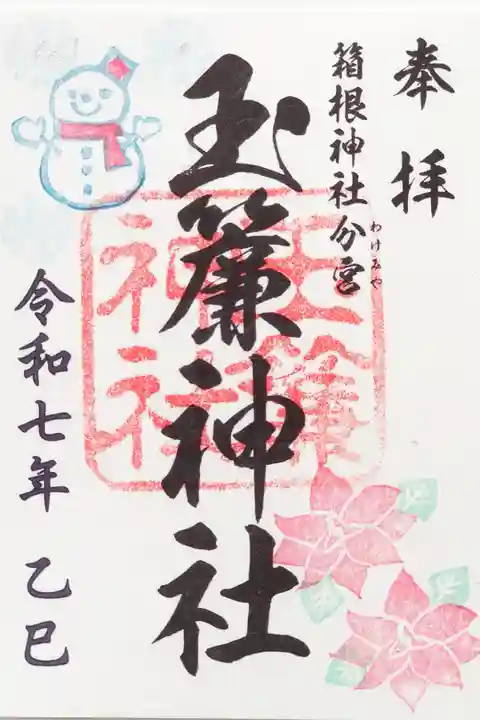 奉拝
箱根神社分宮
わけみや
玉簾神社
玉簾
神社
令和七年 乙巳